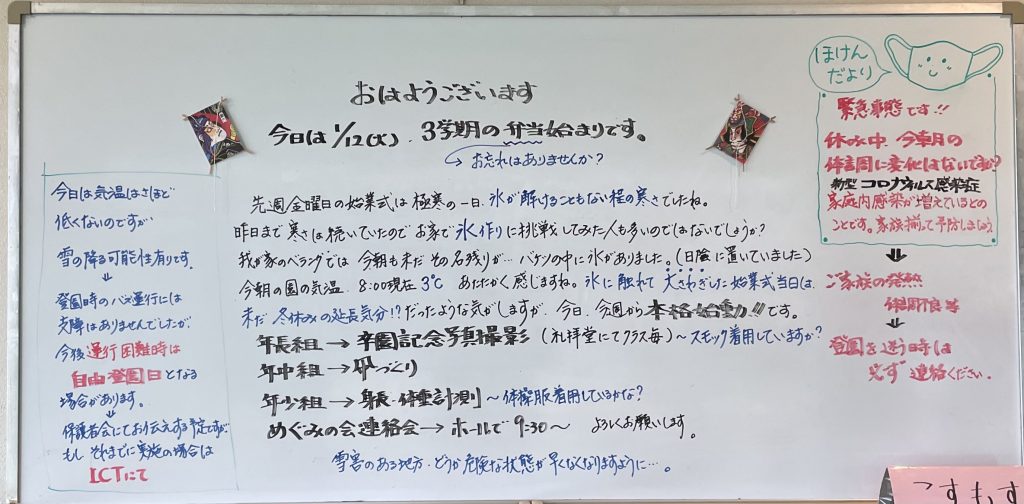 おはようございます
今日は 1/12(火). 3学期の弁当始まりです。
お忘れはありませんか?
先週金曜日の始業式は極寒の一日、氷が解けることもない程の寒さでしたね。
昨日まで寒さは続いていたのでお家で氷作りに挑戦してみた人も多いのではないでしょうか?
我が家のベランダでは 今朝も未だその名残りが… バケツの中に氷がありました。(日陰に置いていました)
今朝の園の気温 8:00現在 3℃ あたたかく感じますね。氷に触れて大さわぎした始業式当日は、
未だ 冬休みの延長気分!? だったような気がしますが、今日、今週から本格始動!! です。
年長組→卒園記念写真撮影 (礼拝堂にてクラス毎)〜スモック着用していますか?
年中組→凧づくり
年少組→身長・体重計測〜体操服着用しているかな?
めぐみの会連絡会→ホールで 9:30〜 よろしくお願いします。
雪害のある地方、どうか危険な状態が早くなくなりますように…。
今日は気温はさほど
低くないのですが
雪の降る可能性有りです。
登園時のバス運行には
支障はありませんでしたが、
今後運行困難時は
自由登園日となる
場合があります。
保護者会にてお伝えする予定ですが
もし それまでに実施の場合は
ICTにて
ほけん
だより
緊急事態です!!
休み中、今朝の
体調に変化はないですか?
新型コロナウィルス感染症
家庭内感染が増えているとの
ことです。家族揃って予防しましょう
ご家族の発熱
体調不良等
登園を迷う時は
必ず連絡ください。
こすもす